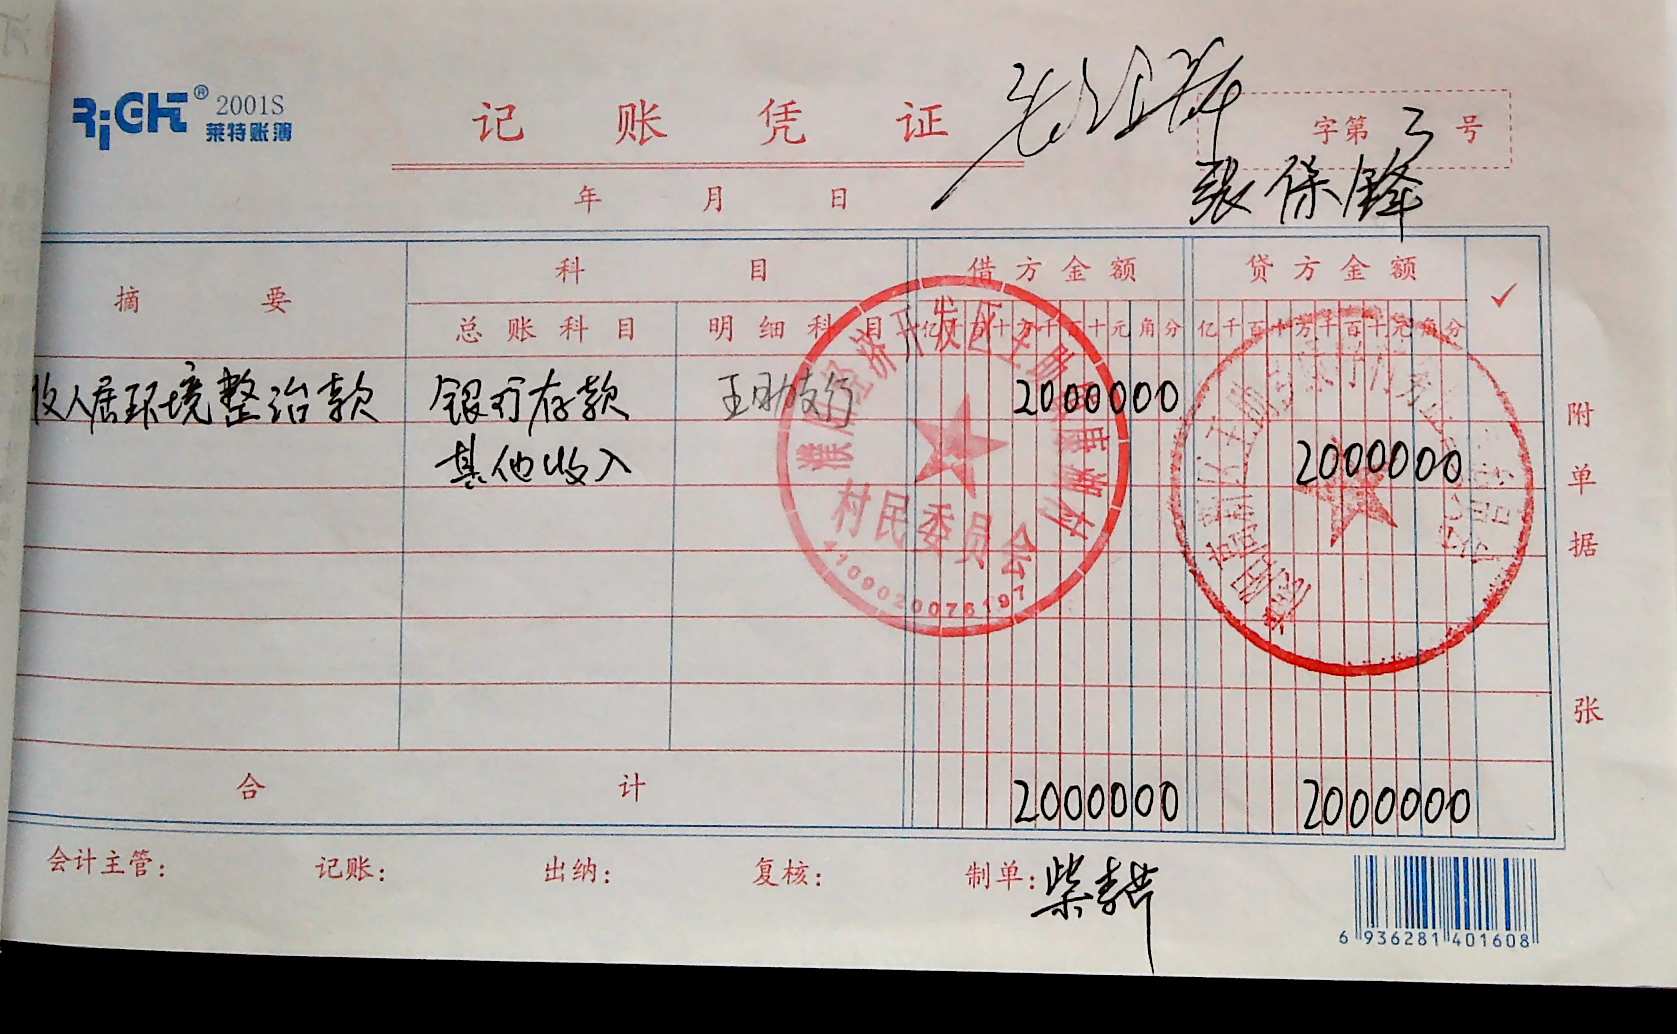 RiGHT® 2001S
莱特账簿
记账凭证
字第 3 号
张保锋
年 月 日
摘要 科目 借方金额 贷方金额 ✓
总账科目 明细科目 亿千百十万千百十元角分 亿千百十万千百十元角分
收人居环境整治款 银行存款 王助支行 2000000
其他收入 2000000
附单据 张
濮阳经济开发区王助镇
村民委员会
4109020076197
合计 2000000 2000000
会计主管: 记账: 出纳: 复核: 制单: 柴
6 936281 401608